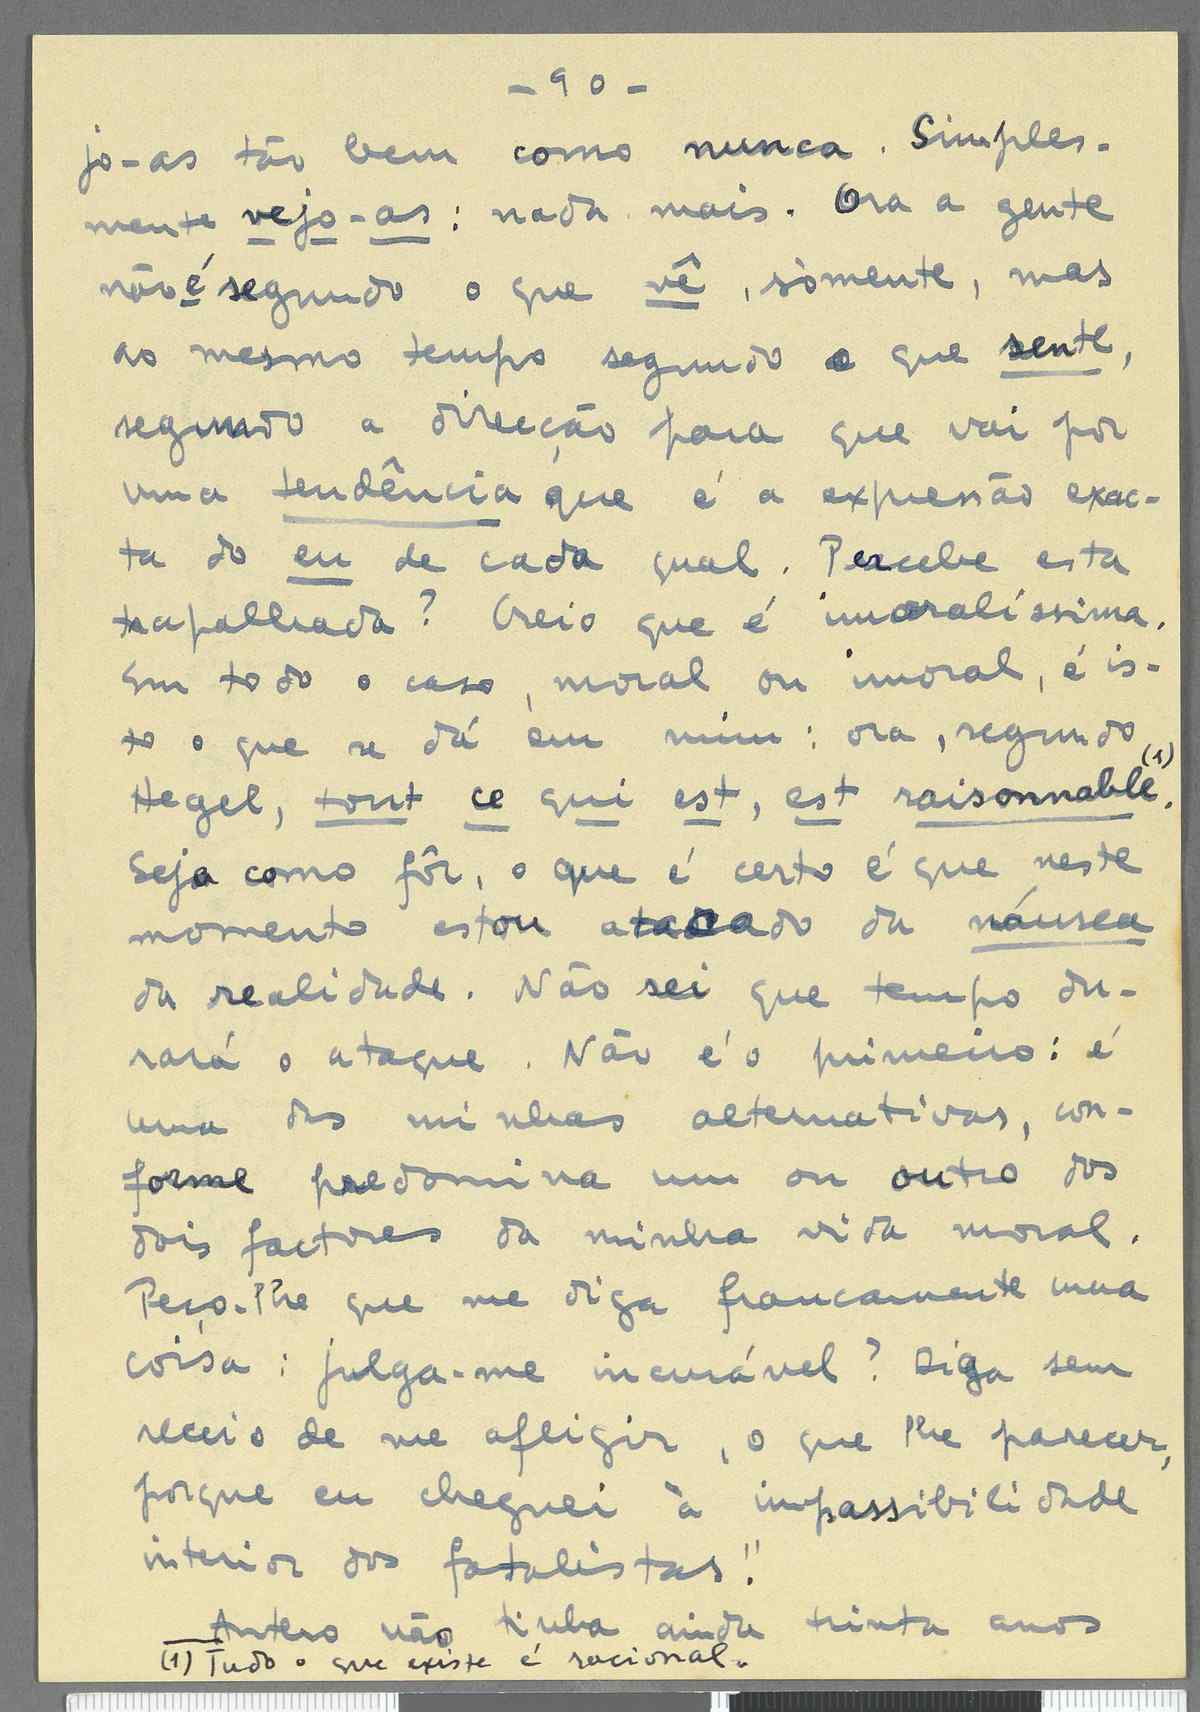 - 90 -
jo-as tão bem como nunca. Simples-
mente vejo-as: nada mais. Ora a gente
não é segundo o que vê, sòmente, mas
ao mesmo tempo segundo o que sente,
segundo a direcção para que vai por
uma tendência que é a expressão exac-
ta do eu de cada qual. Percebe esta
trapalhada? Creio que é imoralíssima.
Em todo o caso, moral ou imoral, é is-
to o que se dá em mim: ora, segundo
Hegel, tout ce qui est, est raisonnable (1).
Seja como fôr, o que é certo é que neste
momento estou atacado da náusea
da realidade. Não sei que tempo du-
rará o ataque. Não é o primeiro: é
uma das minhas alternativas, con-
forme predomina um ou outro dos
dois factores da minha vida moral.
Peço-lhe que me diga francamente uma
coisa: julga-me incurável? Diga sem
receio de me afligir, o que lhe parecer,
porque eu cheguei à impassibilidade
interior dos fatalistas!"
Antero não tinha ainda trinta anos
(1) Tudo o que existe é racional.